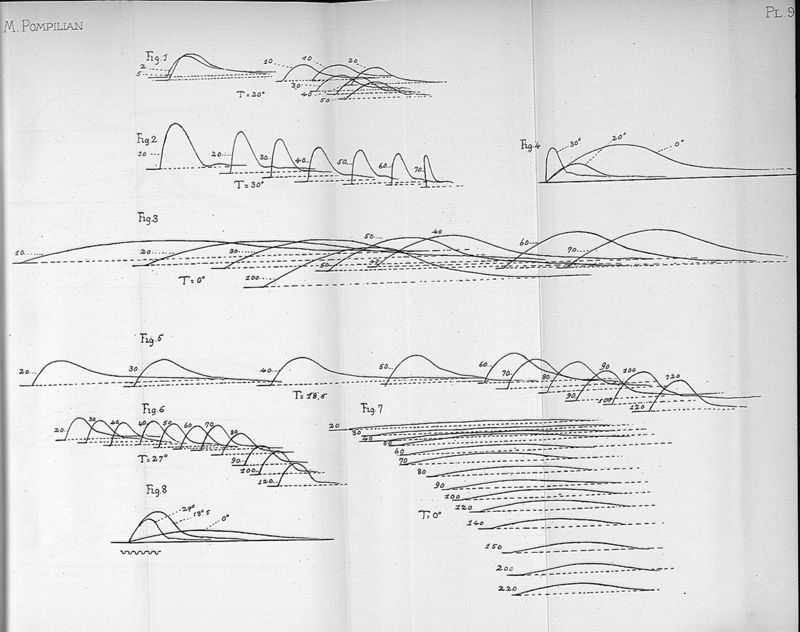 M. POMPILIAN
PL. 9
Fig. 1
2
5
10
10
20
30
40
50
T = 20°
Fig 2
10
20
30
40
50
60
70
T = 30°
Fig. 4
30°
20°
0°
Fig. 3
10
20
30
50
40
60
70
50
40
100
T = 0°
Fig. 5
20
30
40
50
60
70
80
90
90
100
100
120
120
T = 18,5
Fig. 6
20
30
40
40
50
60
70
80
90
100
120
T = 27°
Fig. 7
20
30
40
50
60
70
80
90
100
120
140
150
200
220
T = 0°
Fig. 8
27°
18°5
0°